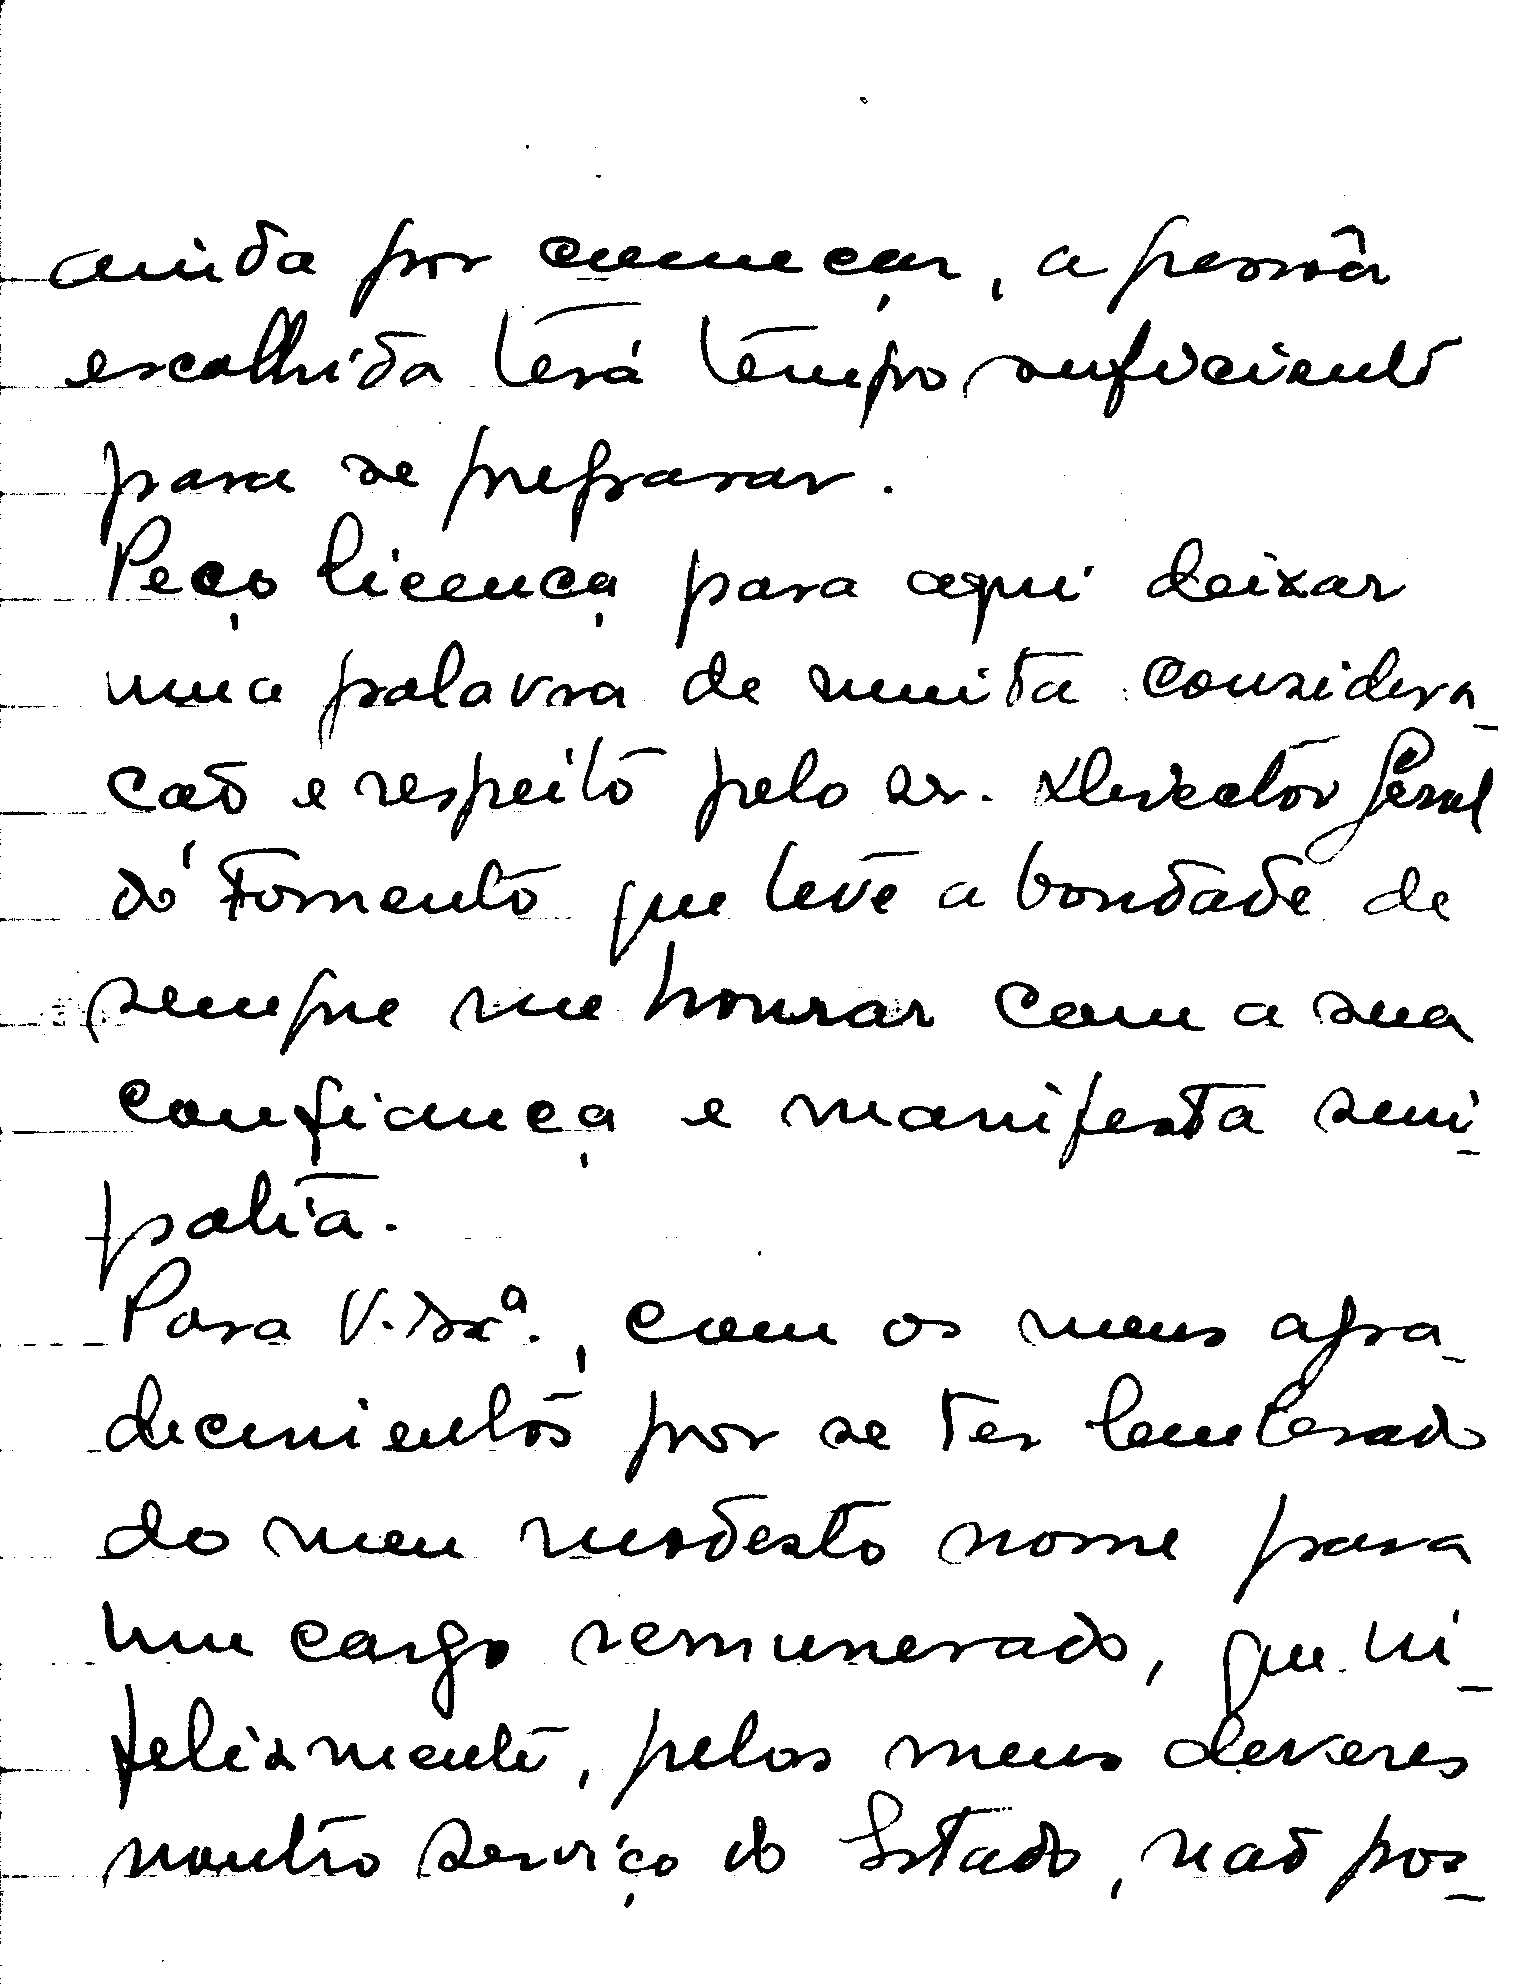 ainda por começar, a pessôa
escolhida terá tempo suficiente
para se preparar.
Peço licença para aqui deixar
uma palavra de muita considera-
ção e respeito pelo sr. Director Geral
do Fomento que teve a bondade de
sempre me honrar com a sua
confiança e manifesta sim-
patia.
Para V. Exª., com os meus agra-
decimentos por se ter lembrado
do meu modesto nome para
um cargo remunerado, que in-
felizmente, pelos meus deveres
noutro serviço do Estado, não pos-